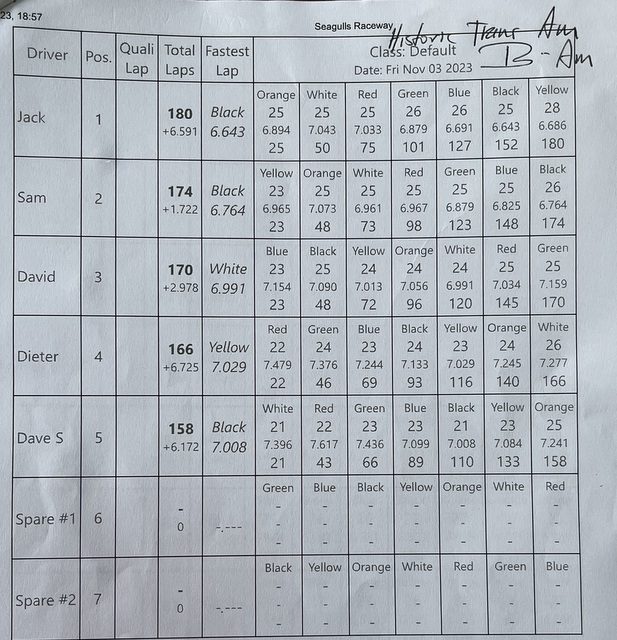 23, 18:57
Seagulls Raceway
Historic Trans Am
Class: Default
B-Am
Date: Fri Nov 03 2023
Driver Pos. Quali Lap Total Laps Fastest Lap
Orange White Red Green Blue Black Yellow
Jack 1 180 Black 25 25 25 26 26 25 28
+6.591 6.643 6.894 7.043 7.033 6.879 6.691 6.643 6.686
25 50 75 101 127 152 180
Yellow Orange White Red Green Blue Black
Sam 2 174 Black 23 25 25 25 25 25 26
+1.722 6.764 6.965 7.073 6.961 6.967 6.879 6.825 6.764
23 48 73 98 123 148 174
Blue Black Yellow Orange White Red Green
David 3 170 White 23 25 24 24 24 25 25
+2.978 6.991 7.154 7.090 7.013 7.056 6.991 7.034 7.159
23 48 72 96 120 145 170
Red Green Blue Black Yellow Orange White
Dieter 4 166 Yellow 22 24 23 24 23 24 26
+6.725 7.029 7.479 7.376 7.244 7.133 7.029 7.245 7.277
22 46 69 93 116 140 166
White Red Green Blue Black Yellow Orange
Dave S 5 158 Black 21 22 23 23 21 23 25
+6.172 7.008 7.396 7.617 7.436 7.099 7.008 7.084 7.241
21 43 66 89 110 133 158
Green Blue Black Yellow Orange White Red
Spare #1 6 - - - - - - - -
0 -.--- - - - - - - -
- - - - - - -
Black Yellow Orange White Red Green Blue
Spare #2 7 - - - - - - - -
0 -.--- - - - - - - -
- - - - - - -